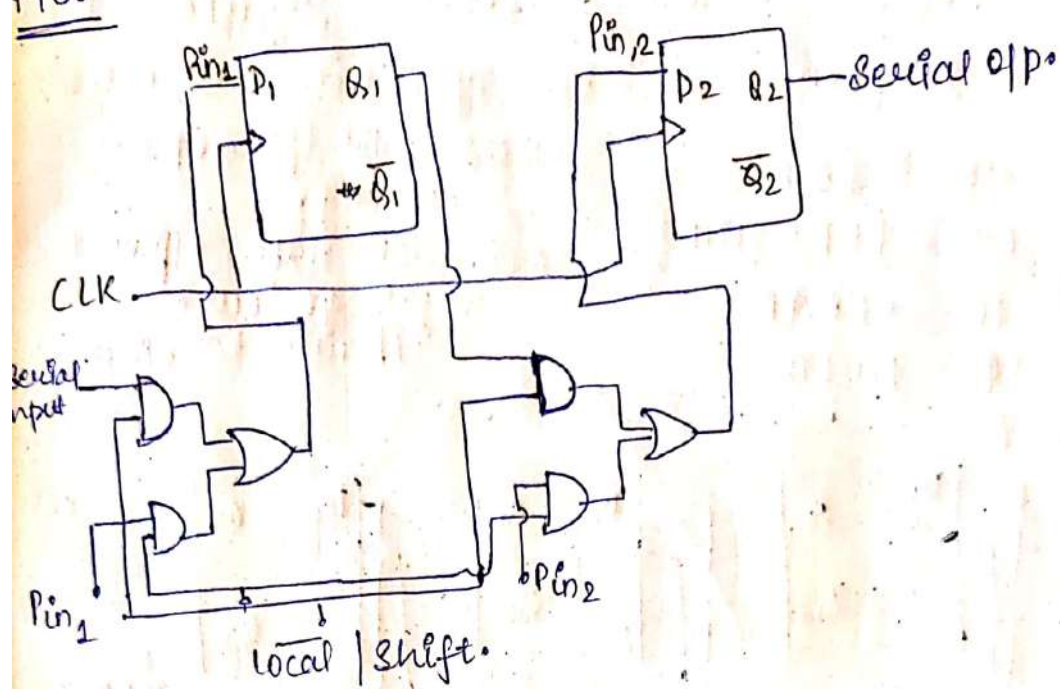 Pin1 D1 Q1
Q̅1
Pin,2 D2 Q2 Serial O/P.
Q̅2
CLK
Serial
input
Pin1
Pin2
l̅o̅c̅a̅l̅ | Shift.